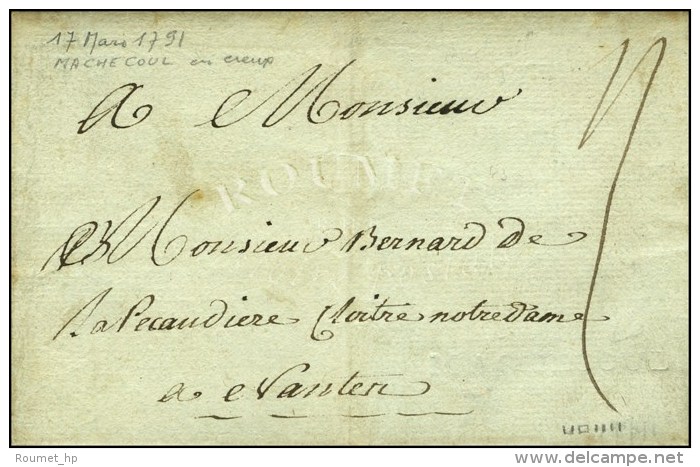 17 Mars 1791
MACHECOUL en creux
A Monsieur
Monsieur Bernard de
la Pecaudiere Cloitre notre Dame
a Nantes
Roumet_hp
delcampe.net